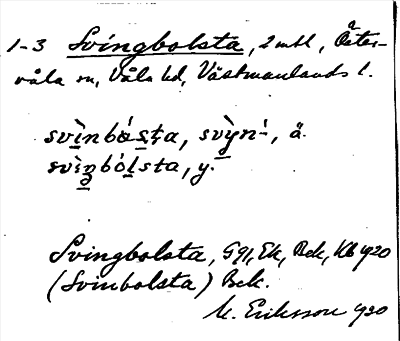 1-3 Svingbolsta, 2 mtl, Öster-
våla sn, Våla hd, Västmanlands l.
svìnbåsta, svỳn-́, ä.
svìŋbólsta, y.
Svingbolsta, Ggl, Ek, Bck, Kb 1920
(Svinbolsta) Bck.
M. Eriksson 1920